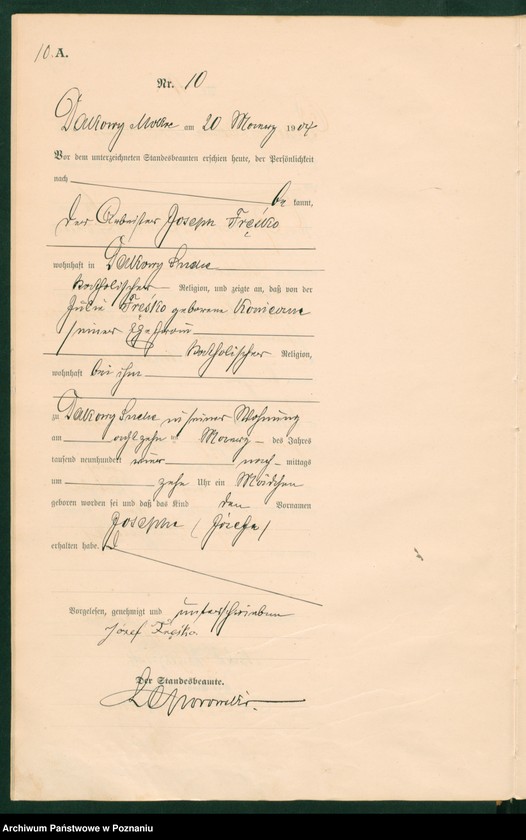 10. A.
Nr. 10
Dalkowy Mokre am 20 Maerz 1904
Vor dem unterzeichneten Standesbeamten erschien heute, der Persönlichkeit
nach be kannt,
der Arbeiter Joseph Fręśko
wohnhaft in Dalkowy Suche
katholischer Religion, und zeigte an, daß von der
Julie Fręśko geborene
seiner Ehefrau
katholischer Religion,
wohnhaft bei ihm
zu Dalkowy Suche in seiner Wohnung
am achtzehn ten Maerz des Jahres
tausend neunhundert vier nach mittags
um zehn Uhr ein Mädchen
geboren worden sei und daß das Kind den Vornamen
Josepha (Józefa)
erhalten habe.
Vorgelesen, genehmigt und unterschrieben
Józef Fręśko
Der Standesbeamte.
Archiwum Państwowe w Poznaniu